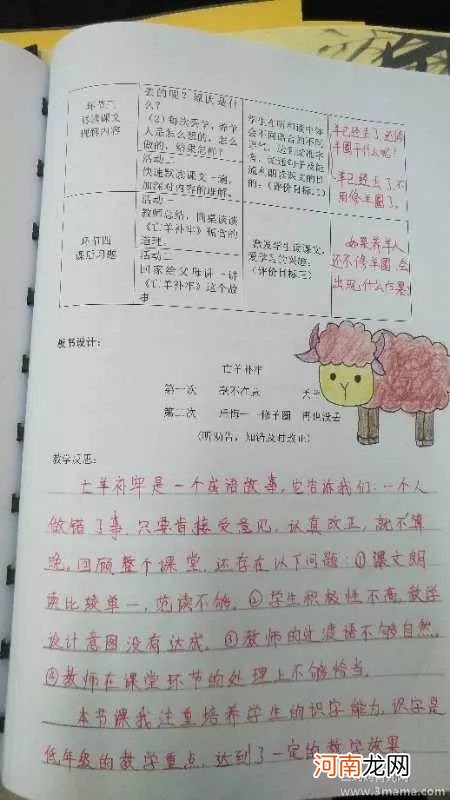 去的呢？原因是什
么？
环节三
精读课文
理解内容
（2）每次丢羊，养羊
人是怎么想的，怎么
做的，结果怎样？
活动二
快速默读课文一遍，
加深对内容的理解。
羊已经丢了，还修
羊圈干什么呢？
羊已经丢了，不
用修羊圈了。
环节四
课后习题
活动一
教师总结，同桌谈谈
《亡羊补牢》蕴含的
道理。
活动二
回家给父母讲一讲
《亡羊补牢》这个故
事
激发学生读课文，
爱学习的兴趣；
（评价目标三）
如果养羊人
还不修羊圈，会
出现什么后果
板书设计：
亡羊补牢
第一次 毫不在意
第二次 后悔——修羊圈 再也没丢
（听劝告，知错及时改正）
教学反思：
亡羊补牢是一个成语故事，它告诉我们：一个人
做错了事，只要肯接受意见，认真改正，就不算
晚。回顾整个课堂，还存在以下问题：①课文朗
读比较单一，范读不够。②学生积极性不高，教学
设计意图没有达成。③教师的过渡语不够自然。
④教师在课堂环节的处理上不够恰当。
本节课我注重培养学生的识字能力，识字是
低年级的教学重点，达到了一定的教学效果
河南龙网
www.3mama.com